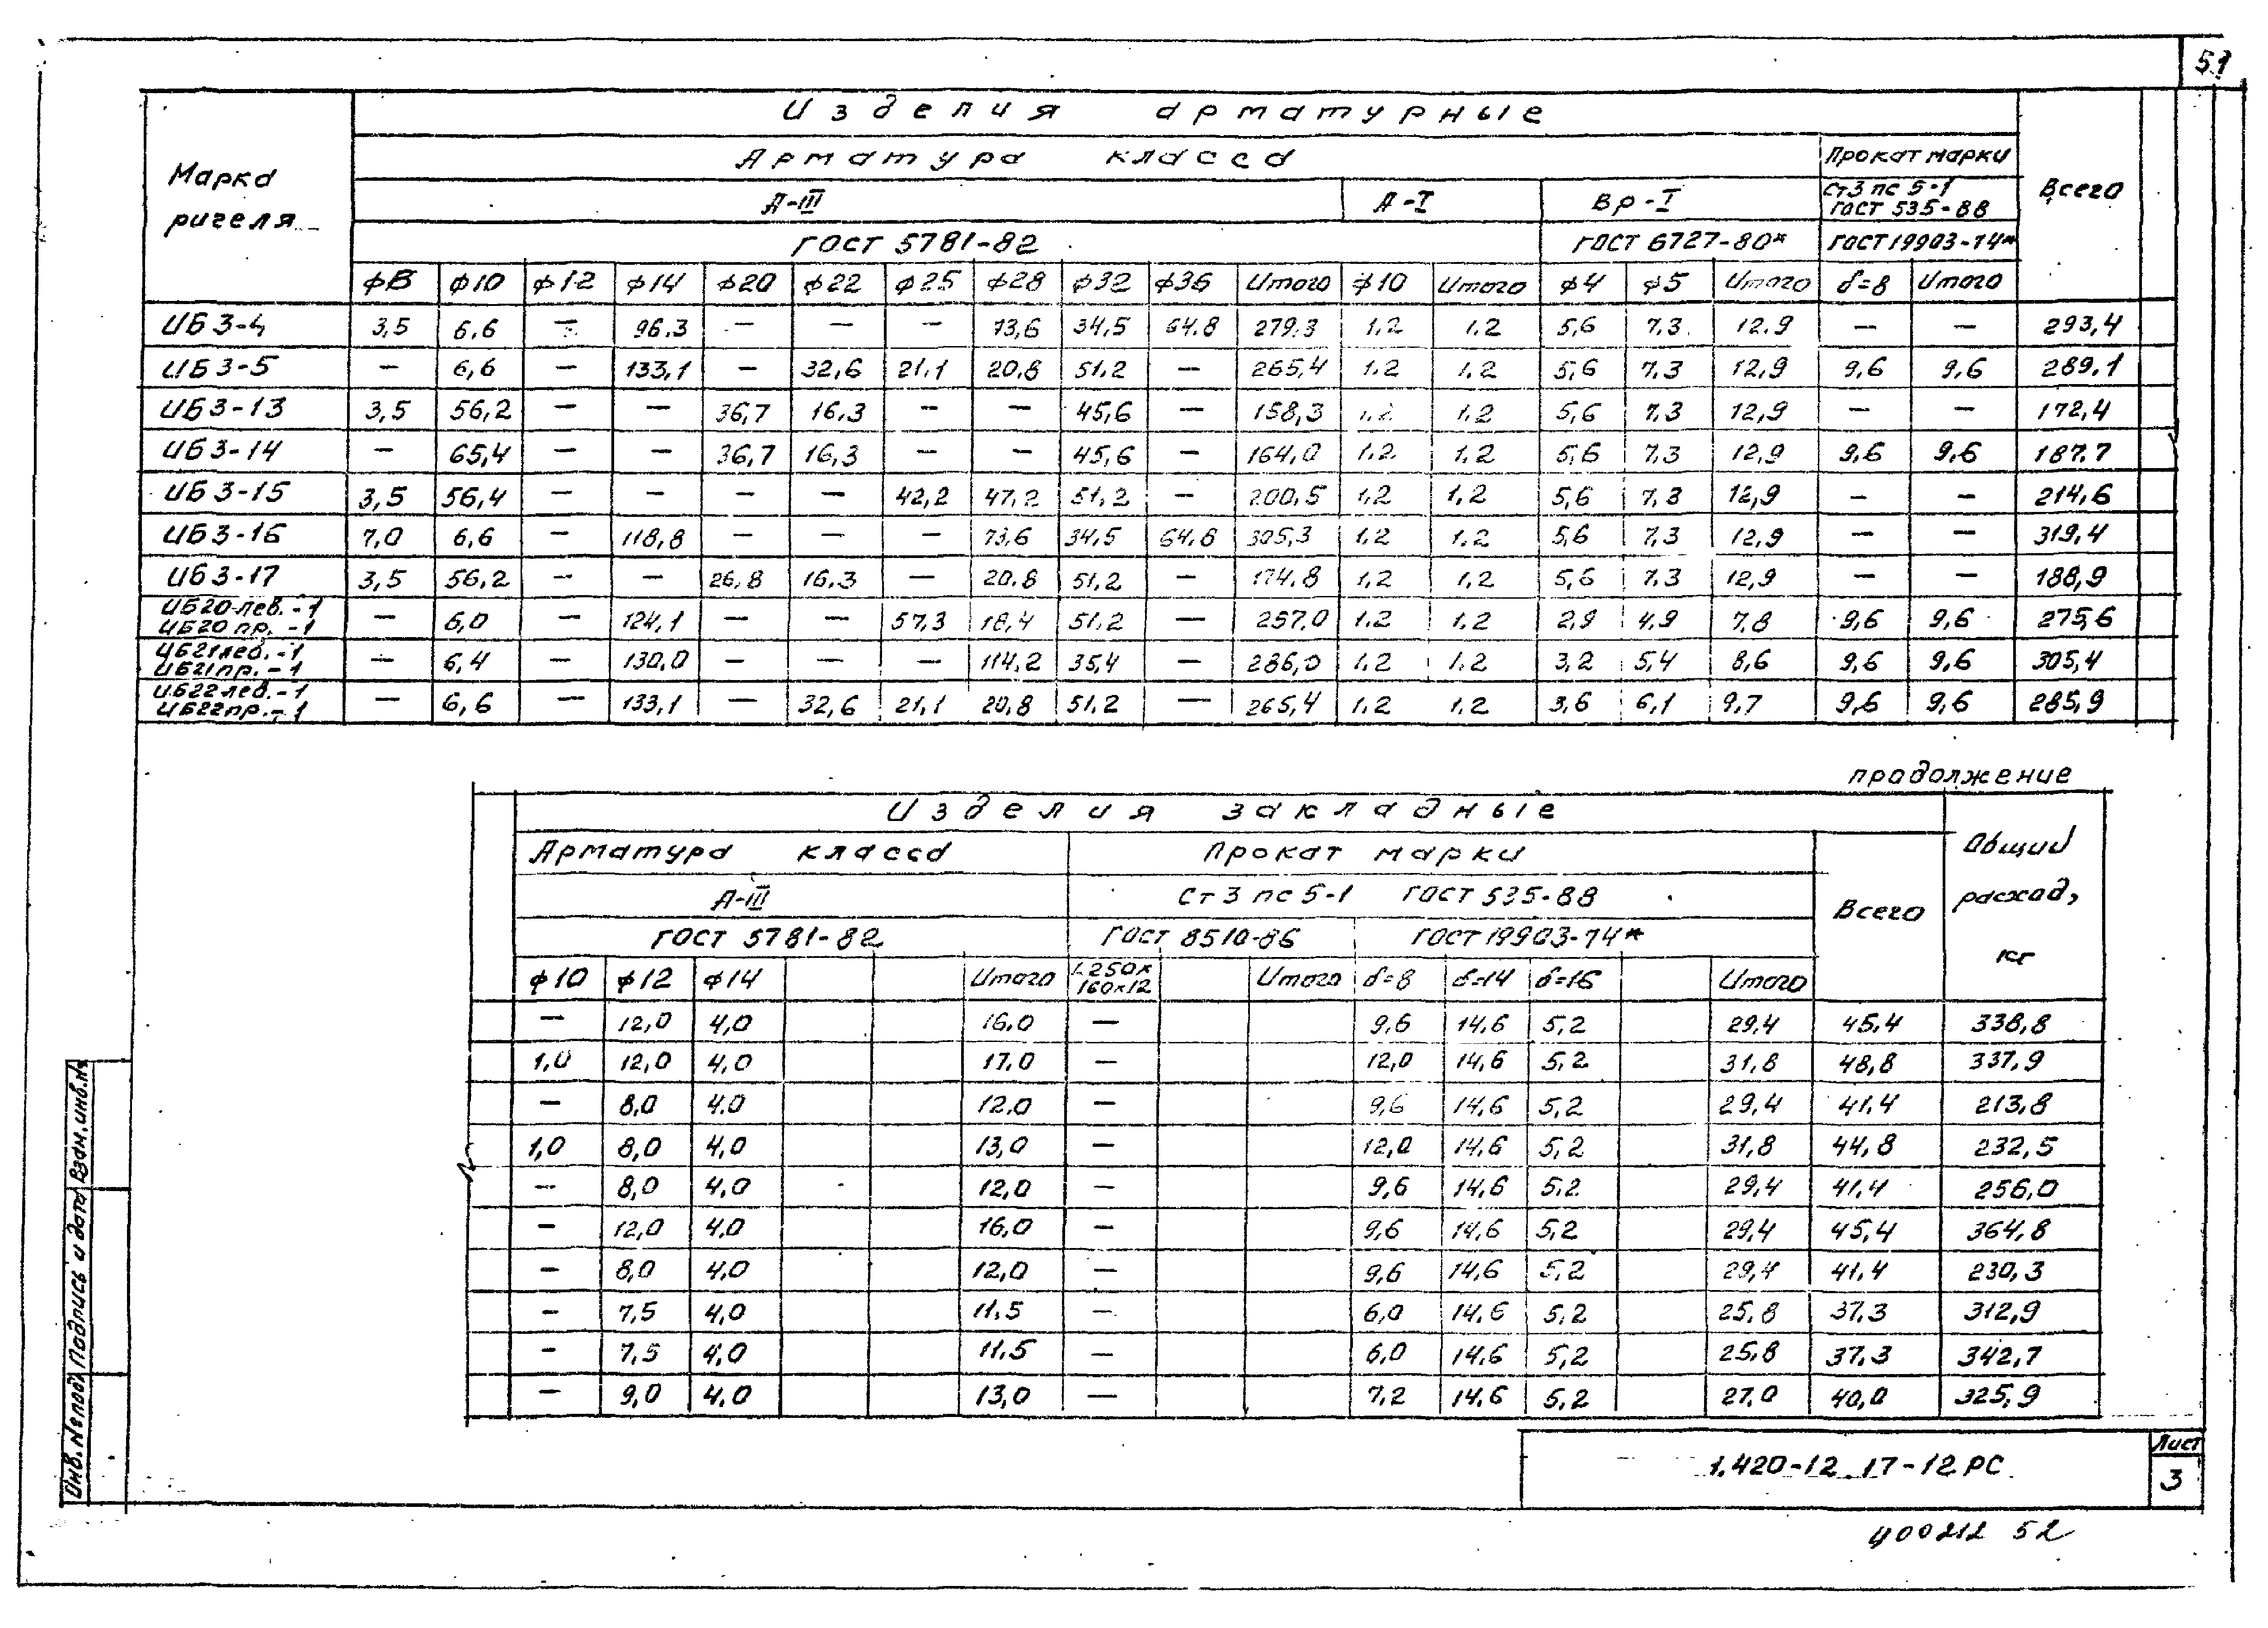 51
Изделия арматурные
Марка ригеля
Арматура класса
Прокат марки
Всего
А-III
А-I
Вр-I
Ст3пс5-1
ГОСТ 535-88
ГОСТ 5781-82
ГОСТ 6727-80*
ГОСТ 19903-74*
ф8 ф10 ф12 ф14 ф20 ф22 ф25 ф28 ф32 ф36 Итого ф10 Итого ф4 ф5 Итого δ=8 Итого
ИБ3-4 3,5 6,6 — 96,3 — — — 73,6 34,5 64,8 279,3 1,2 1,2 5,6 7,3 12,9 — — 293,4
ИБ3-5 — 6,6 — 133,1 — 32,6 21,1 20,8 51,2 — 265,4 1,2 1,2 5,6 7,3 12,9 9,6 9,6 289,1
ИБ3-13 3,5 56,2 — — 36,7 16,3 — — 45,6 — 158,3 1,2 1,2 5,6 7,3 12,9 — — 172,4
ИБ3-14 — 65,4 — — 36,7 16,3 — — 45,6 — 164,0 1,2 1,2 5,6 7,3 12,9 9,6 9,6 187,7
ИБ3-15 3,5 56,4 — — — — 42,2 47,2 51,2 — 200,5 1,2 1,2 5,6 7,3 12,9 — — 214,6
ИБ3-16 7,0 6,6 — 118,8 — — — 73,6 34,5 64,8 305,3 1,2 1,2 5,6 7,3 12,9 — — 319,4
ИБ3-17 3,5 56,2 — — 26,8 16,3 — 20,8 51,2 — 174,8 1,2 1,2 5,6 7,3 12,9 — — 188,9
ИБ20лев.-1
ИБ20пр.-1 — 6,0 — 124,1 — — 57,3 18,4 51,2 — 257,0 1,2 1,2 2,9 4,9 7,8 9,6 9,6 275,6
ИБ21лев.-1
ИБ21пр.-1 — 6,4 — 130,0 — — — 114,2 35,4 — 286,0 1,2 1,2 3,2 5,4 8,6 9,6 9,6 305,4
ИБ22лев.-1
ИБ22пр.-1 — 6,6 — 133,1 — 32,6 21,1 20,8 51,2 — 265,4 1,2 1,2 3,6 6,1 9,7 9,6 9,6 285,9
продолжение
Изделия закладные
Общий расход, кг
Арматура класса
Прокат марки
Всего
А-III
Ст3пс5-1 ГОСТ 535-88
ГОСТ 5781-82
ГОСТ 8510-86
ГОСТ 19903-74*
ф10 ф12 ф14 Итого L250x160x12 Итого δ=8 δ=14 δ=16 Итого
— 12,0 4,0 16,0 — 9,6 14,6 5,2 29,4 45,4 338,8
1,0 12,0 4,0 17,0 — 12,0 14,6 5,2 31,8 48,8 337,9
— 8,0 4,0 12,0 — 9,6 14,6 5,2 29,4 41,4 213,8
1,0 8,0 4,0 13,0 — 12,0 14,6 5,2 31,8 44,8 232,5
— 8,0 4,0 12,0 — 9,6 14,6 5,2 29,4 41,4 256,0
— 12,0 4,0 16,0 — 9,6 14,6 5,2 29,4 45,4 364,8
— 8,0 4,0 12,0 — 9,6 14,6 5,2 29,4 41,4 230,3
— 7,5 4,0 11,5 — 6,0 14,6 5,2 25,8 37,3 312,9
— 7,5 4,0 11,5 — 6,0 14,6 5,2 25,8 37,3 342,7
— 9,0 4,0 13,0 — 7,2 14,6 5,2 27,0 40,0 325,9
Инв.№подл Подпись и дата Взам.инв.№
1.420-12.17-12РС
Лист
3
Ц00212 52